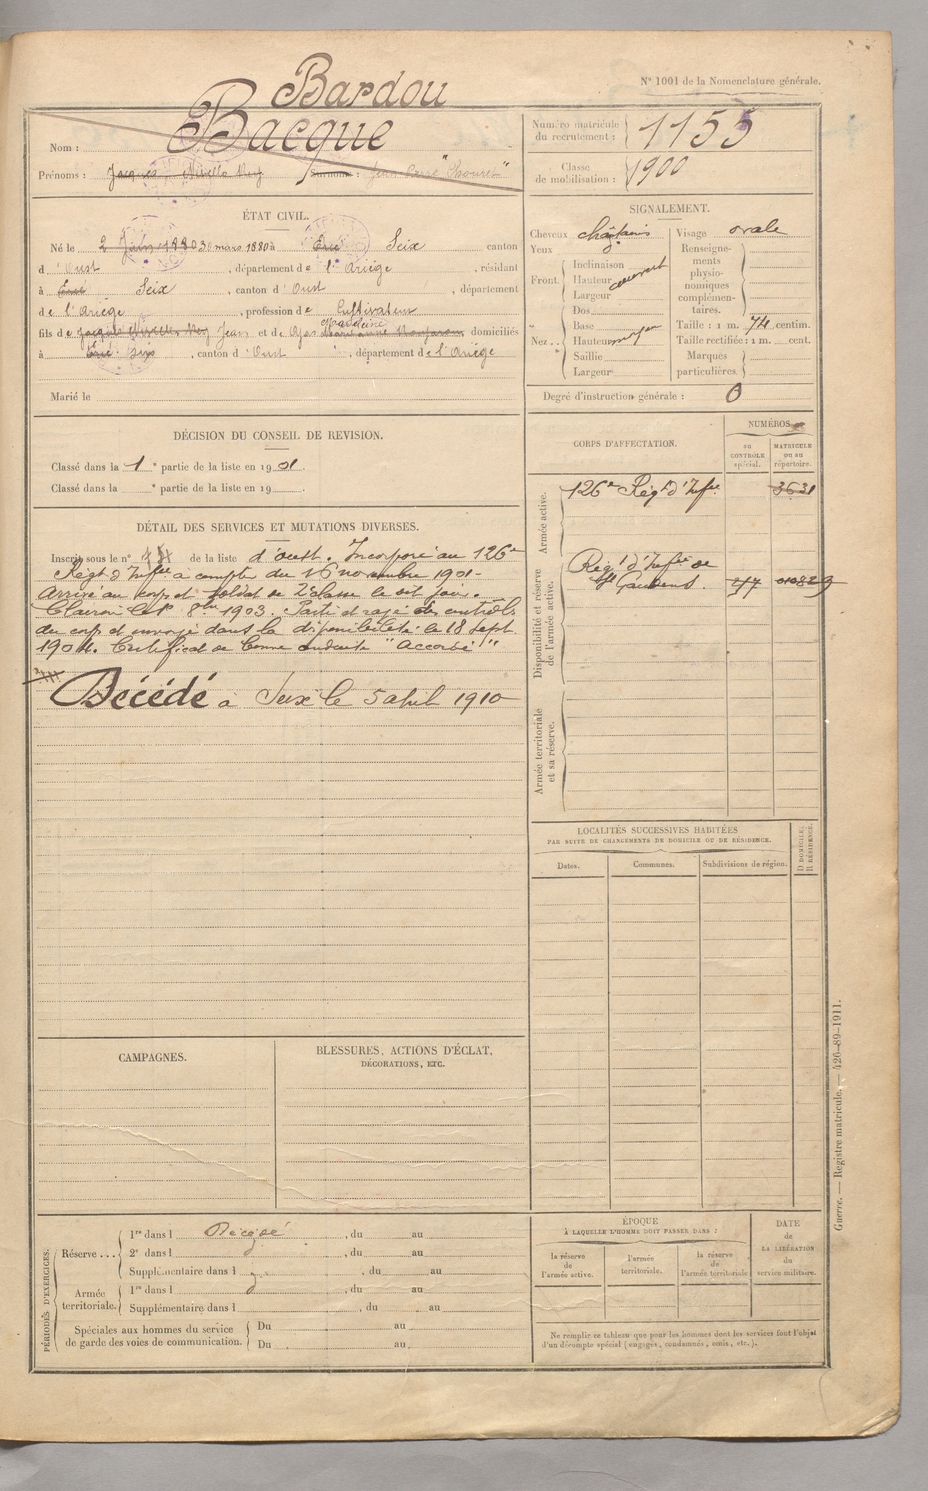 N° 1001 de la Nomenclature générale.
Bardou
Bacque
Nom :
Prénoms : Jacques Surnoms : Jean Pierre
Numéro matricule du recrutement : 1155
Classe de mobilisation : 1900
ÉTAT CIVIL.
Né le 2 Juin 1880 30 mars 1880 à Erce Seix canton
d'Oust, département de l'Ariège, résidant
à Ercé Seix, canton d'Oust, département
de l'Ariège, profession de Cultivateur
Madeleine
fils de Jacques Jean et de domiciliés
à Erce Seix, canton d'Oust, département de l'Ariège
Marié le
SIGNALEMENT.
Cheveux châtains
Yeux
Front. Inclinaison
Hauteur couvert
Largeur
Nez.. Dos
Base
Hauteur moyen
Saillie
Largeur
Visage ovale
Renseignements physionomiques complémentaires.
Taille : 1 m. 74 centim.
Taille rectifiée : 1 m. cent.
Marques particulières.
Degré d'instruction générale : 0
DÉCISION DU CONSEIL DE REVISION.
Classé dans la 1e partie de la liste en 1901
Classé dans la e partie de la liste en 19
CORPS D'AFFECTATION.
NUMÉROS
au CONTRÔLE spécial.
MATRICULE ou au répertoire.
Armée active.
126e Régt d'Infie 3631
Disponibilité et réserve de l'armée active.
Regt d'Infie de
St Gaudens. 277
Armée territoriale et sa réserve.
DÉTAIL DES SERVICES ET MUTATIONS DIVERSES.
Inscrit sous le n° de la liste d'oust. Incorporé au 126e
Régt d'Infie à compter du 16 novembre 1901-
Arrivé au corps et soldat de 2e classe le dit jour.
Clairon le 8bre 1903. Parti et rayé des contrôles
du corps et envoyé dans la disponibilité le 18 sept
1904. Certificat de bonne conduite "Accordé"
Décédé à Seix le 5 avril 1910
LOCALITÉS SUCCESSIVES HABITÉES
PAR SUITE DE CHANGEMENTS DE DOMICILE OU DE RÉSIDENCE.
Dates.
Communes.
Subdivisions de région.
D DOMICILE, R RÉSIDENCE.
CAMPAGNES.
BLESSURES, ACTIONS D'ÉCLAT,
DÉCORATIONS, ETC.
PÉRIODES D'EXERCICES.
Réserve ... 1re dans l Décédé, du au
2e dans l , du au
Supplémentaire dans l , du au
Armée territoriale. 1re dans l , du au
Supplémentaire dans l , du au
Spéciales aux hommes du service de garde des voies de communication. Du au
Du au
ÉPOQUE
À LAQUELLE L'HOMME DOIT PASSER DANS :
la réserve de l'armée active.
l'armée territoriale.
la réserve de l'armée territoriale
DATE de LA LIBÉRATION du service militaire.
Ne remplir ce tableau que pour les hommes dont les services font l'objet
d'un décompte spécial (engagés, condamnés, omis, etc.).
Guerre. — Registre matricule. — 426-89-1911.